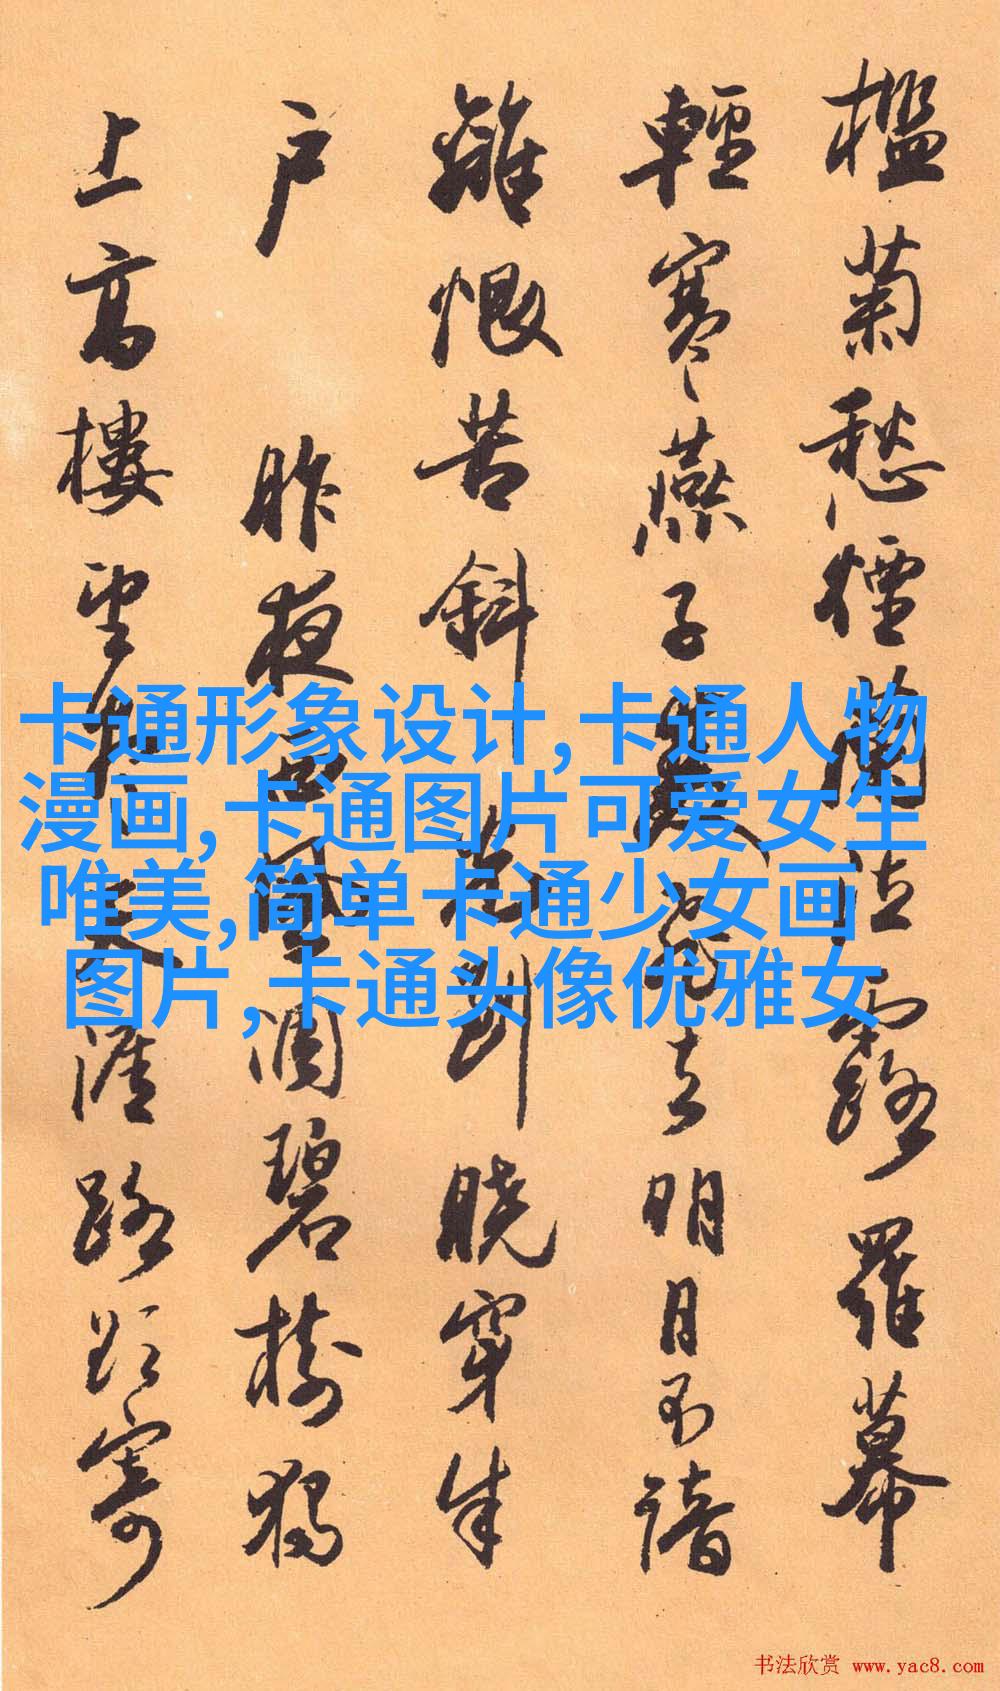 槛菊愁煙蘭泣露羅幕
輕寒燕子雙飛去明月不諳
離恨苦斜光到曉穿朱
户 昨夜西風凋碧樹獨
上高樓望盡天涯路欲寄
卡通形象设计,卡通人物
漫画,卡通图片可爱女生
唯美,简单卡通少女画
图片,卡通头像优雅女
书法欣赏 www.yac8.com